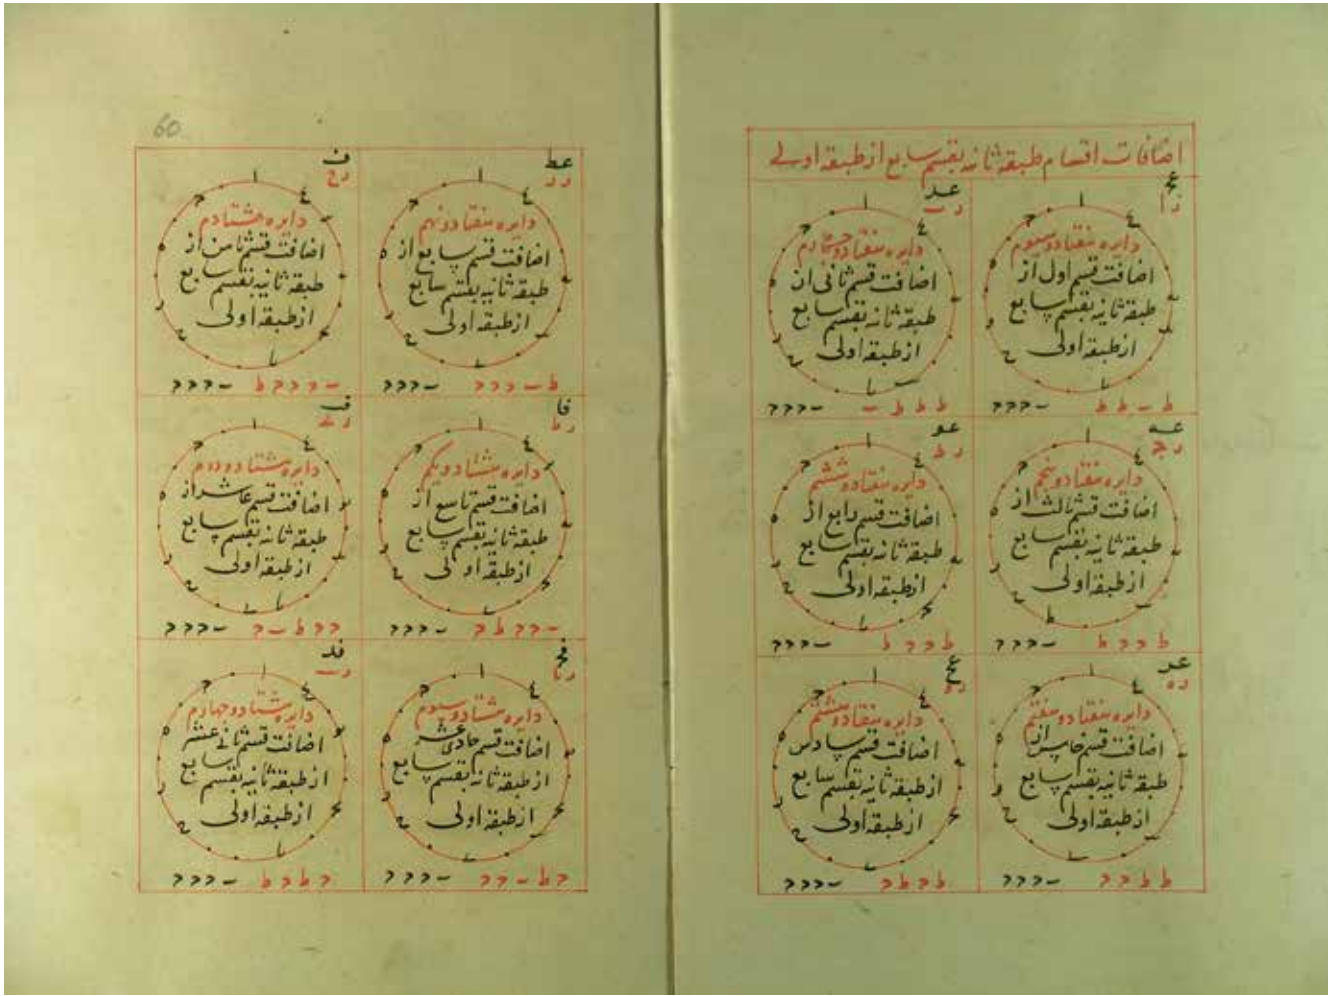 اضافات اقسام طبقه ثانیه بقسم سابع از طبقه اولی
عج
ز ا
دایره هفتاد و سیوم
اضافت قسم اول از
طبقه ثانیه بقسم سابع
از طبقه اولی
ط ب ط ط
ب ج ج ج
عد
ز ب
دایره هفتاد و چهارم
اضافت قسم ثانی از
طبقه ثانیه بقسم سابع
از طبقه اولی
ط ط ط ب
ب ج ج ج
عه
ز ج
دایره هفتاد و پنجم
اضافت قسم ثالث از
طبقه ثانیه بقسم سابع
از طبقه اولی
ط ج ج ط
ب ج ج ج
عو
دایره هفتاد و ششم
اضافت قسم رابع از
طبقه ثانیه بقسم سابع
از طبقه اولی
ط ج ج ط
ب ج ج ج
عز
ز ه
دایره هفتاد و هفتم
اضافت قسم خامس از
طبقه ثانیه بقسم سابع
از طبقه اولی
ط ط ج ج
ب ج ج ج
عح
ز و
دایره هفتاد و هشتم
اضافت قسم سادس
از طبقه ثانیه بقسم سابع
از طبقه اولی
ط ج ط ج
ب ج ج ج
60
عط
ز ز
دایره هفتاد و نهم
اضافت قسم سابع از
طبقه ثانیه بقسم سابع
از طبقه اولی
ط ب ج ج ج
ب ج ج ج
ف
ز ح
دایره هشتادم
اضافت قسم ثامن از
طبقه ثانیه بقسم سابع
از طبقه اولی
ب ج ج ج ط
ب ج ج ج
فا
ز ط
دایره هشتاد و یکم
اضافت قسم تاسع از
طبقه ثانیه بقسم سابع
از طبقه اولی
ب ج ج ط ج
ب ج ج ج
فب
ز ی
دایره هشتاد و دوم
اضافت قسم عاشر از
طبقه ثانیه بقسم سابع
از طبقه اولی
ج ج ط ب ج
ب ج ج ج
فج
ز یا
دایره هشتاد و سیوم
اضافت قسم حادی عشر
از طبقه ثانیه بقسم سابع
از طبقه اولی
ج ط ب ج ج
ب ج ج ج
فد
ز یب
دایره هشتاد و چهارم
اضافت قسم ثانی عشر
از طبقه ثانیه بقسم سابع
از طبقه اولی
ج ط ج ط
ب ج ج ج